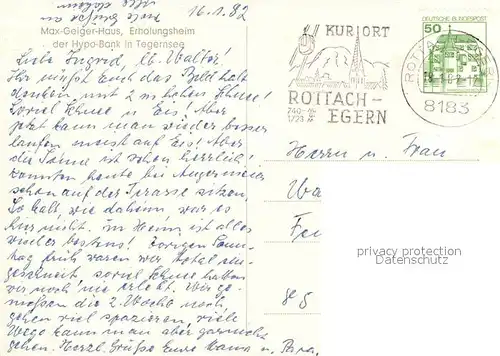 16.1.82
Max-Geiger-Haus, Erholungsheim
der Hypo-Bank in Tegernsee
Liebe Ingrid, lb. Walter!
Ihr müßt Euch das Bild halt
denken mit 2 m hohem Schnee!
Soviel Schnee u. Eis! Aber
jetzt kann man wieder besser
laufen sonst auf Eis! Aber
die Sonne ist schon herrlich!
konnten heute bei
schon auf der Terasse sitzen.
So kalt wie daheim war es
hier nicht. im Heim ist alles
wieder bestens! Vorigen Sams-
tag früh waren wir total ein-
geschneit soviel Schnee hatten
wir noch nie erlebt. Wir ge-
nießen die 2. Woche noch,
gehen viel spazieren, viele
Wege kann man aber garnicht
gehen. Herzl. Grüße Eure Mama u. Papa.
KURORT
ROTTACH-
EGERN
DEUTSCHE BUNDESPOST
50
8183
Herrn u. Frau
Wa
privacy protection
Datenschutz
85